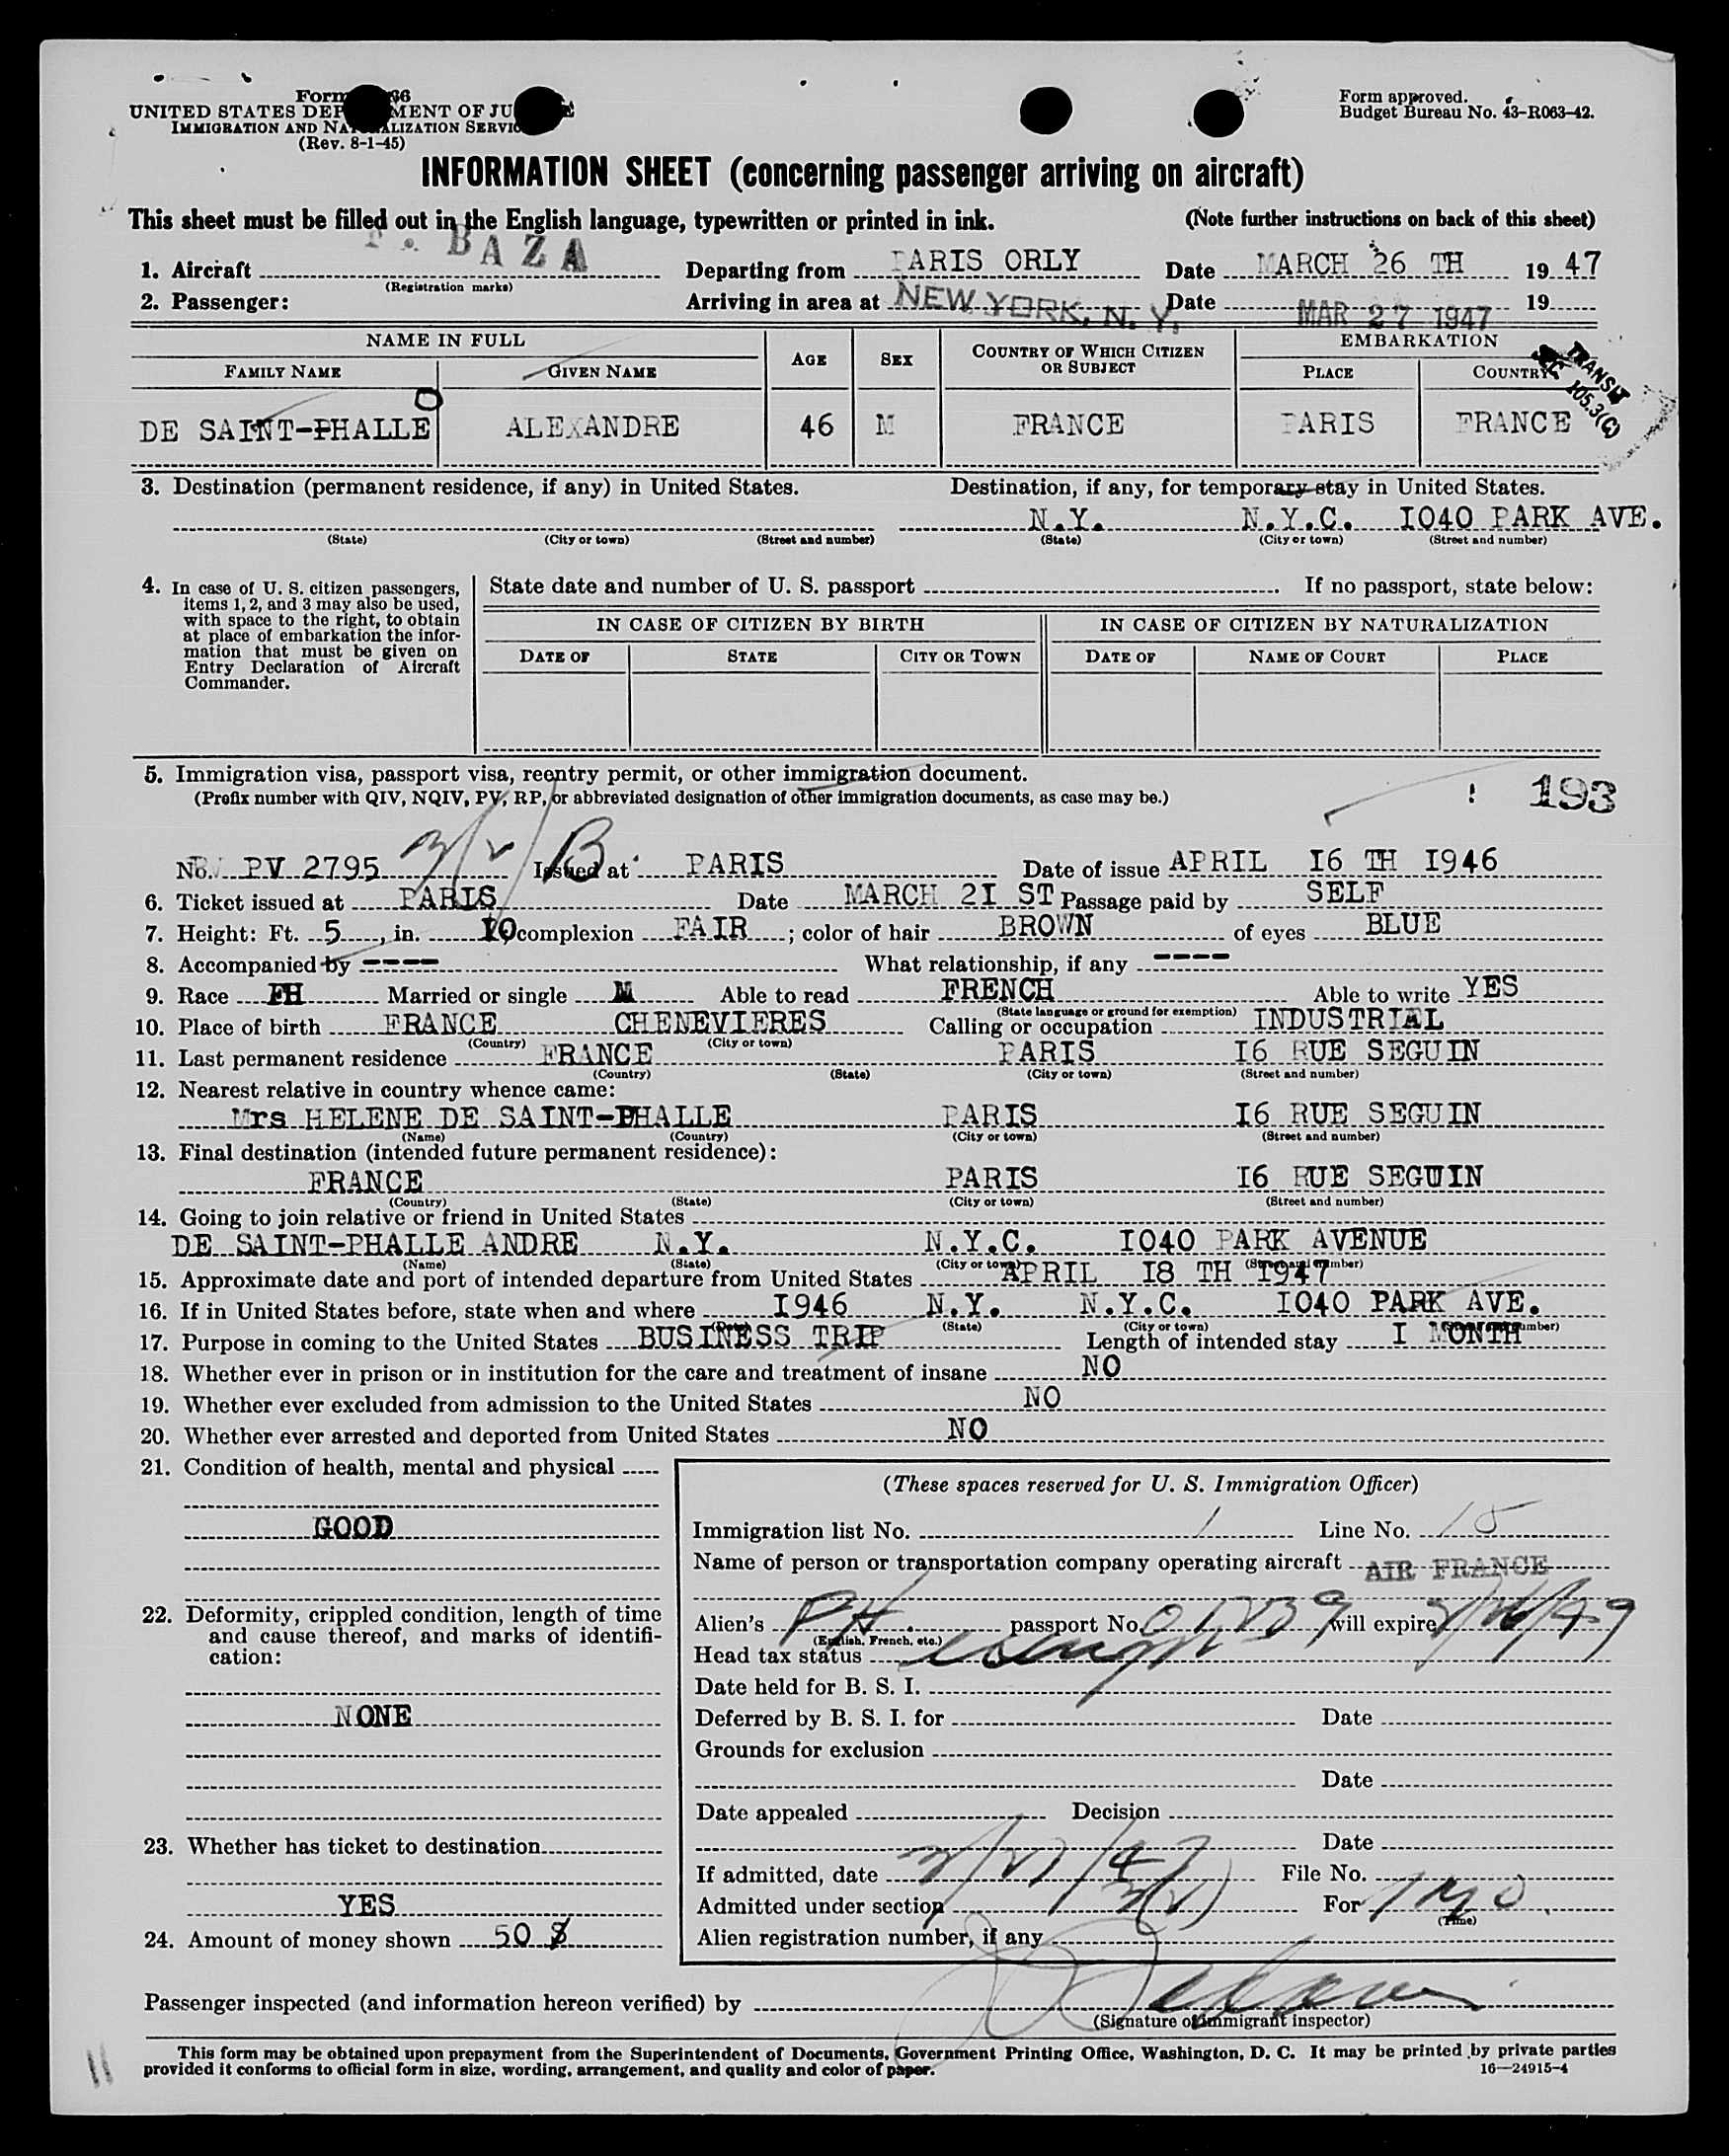 Form
UNITED STATES DEPARTMENT OF JUSTICE
IMMIGRATION AND NATURALIZATION SERVICE
(Rev. 8-1-45)
Form approved.
Budget Bureau No. 43-R063-42.
INFORMATION SHEET (concerning passenger arriving on aircraft)
This sheet must be filled out in the English language, typewritten or printed in ink. (Note further instructions on back of this sheet)
1. Aircraft F. BAZA Departing from PARIS ORLY Date MARCH 26 TH 1947
(Registration marks)
2. Passenger: Arriving in area at NEW YORK, N. Y. Date MAR 27 1947 19
NAME IN FULL AGE SEX COUNTRY OF WHICH CITIZEN OR SUBJECT EMBARKATION
FAMILY NAME GIVEN NAME PLACE COUNTRY
TRANSIT
105.3(C)
DE SAINT-PHALLE ALEXANDRE 46 M FRANCE PARIS FRANCE
3. Destination (permanent residence, if any) in United States. Destination, if any, for temporary stay in United States.
N.Y. N.Y.C. I040 PARK AVE.
(State) (City or town) (Street and number) (State) (City or town) (Street and number)
4. In case of U. S. citizen passengers, items 1, 2, and 3 may also be used, with space to the right, to obtain at place of embarkation the infor-
mation that must be given on Entry Declaration of Aircraft Commander.
State date and number of U. S. passport If no passport, state below:
IN CASE OF CITIZEN BY BIRTH IN CASE OF CITIZEN BY NATURALIZATION
DATE OF STATE CITY OR TOWN DATE OF NAME OF COURT PLACE
5. Immigration visa, passport visa, reentry permit, or other immigration document.
(Prefix number with QIV, NQIV, PV, RP, or abbreviated designation of other immigration documents, as case may be.)
193
No. PV 2795 3/2/B Issued at PARIS Date of issue APRIL I6 TH I946
6. Ticket issued at PARIS Date MARCH 2I ST Passage paid by SELF
7. Height: Ft. 5, in. 10 complexion FAIR; color of hair BROWN of eyes BLUE
8. Accompanied by ---- What relationship, if any ----
9. Race FH Married or single M Able to read FRENCH Able to write YES
(State language or ground for exemption)
10. Place of birth FRANCE CHENEVIERES Calling or occupation INDUSTRIAL
(Country) (City or town)
11. Last permanent residence FRANCE PARIS I6 RUE SEGUIN
(Country) (State) (City or town) (Street and number)
12. Nearest relative in country whence came:
Mrs HELENE DE SAINT-PHALLE PARIS I6 RUE SEGUIN
(Name) (Country) (City or town) (Street and number)
13. Final destination (intended future permanent residence):
FRANCE PARIS I6 RUE SEGUIN
(Country) (State) (City or town) (Street and number)
14. Going to join relative or friend in United States
DE SAINT-PHALLE ANDRE N.Y. N.Y.C. I040 PARK AVENUE
(Name) (State) (City or town) (Street and number)
15. Approximate date and port of intended departure from United States APRIL I8 TH I947
16. If in United States before, state when and where I946 N.Y. N.Y.C. I040 PARK AVE.
(State) (City or town) (Street and number)
17. Purpose in coming to the United States BUSINESS TRIP Length of intended stay I MONTH
18. Whether ever in prison or in institution for the care and treatment of insane NO
19. Whether ever excluded from admission to the United States NO
20. Whether ever arrested and deported from United States NO
21. Condition of health, mental and physical
GOOD
22. Deformity, crippled condition, length of time
and cause thereof, and marks of identifi-
cation:
NONE
23. Whether has ticket to destination
YES
24. Amount of money shown 50 $
(These spaces reserved for U. S. Immigration Officer)
Immigration list No. 1 Line No. 15
Name of person or transportation company operating aircraft AIR FRANCE
Alien's passport No. 01239 will expire
(English, French, etc.)
Head tax status
Date held for B. S. I.
Deferred by B. S. I. for Date
Grounds for exclusion
Date
Date appealed Decision
Date
If admitted, date 3/27/47 File No.
Admitted under section 3(2) For 1 mo.
(Time)
Alien registration number, if any
Passenger inspected (and information hereon verified) by
(Signature of immigrant inspector)
This form may be obtained upon prepayment from the Superintendent of Documents, Government Printing Office, Washington, D. C. It may be printed by private parties
provided it conforms to official form in size, wording, arrangement, and quality and color of paper.
16—24915-4
11